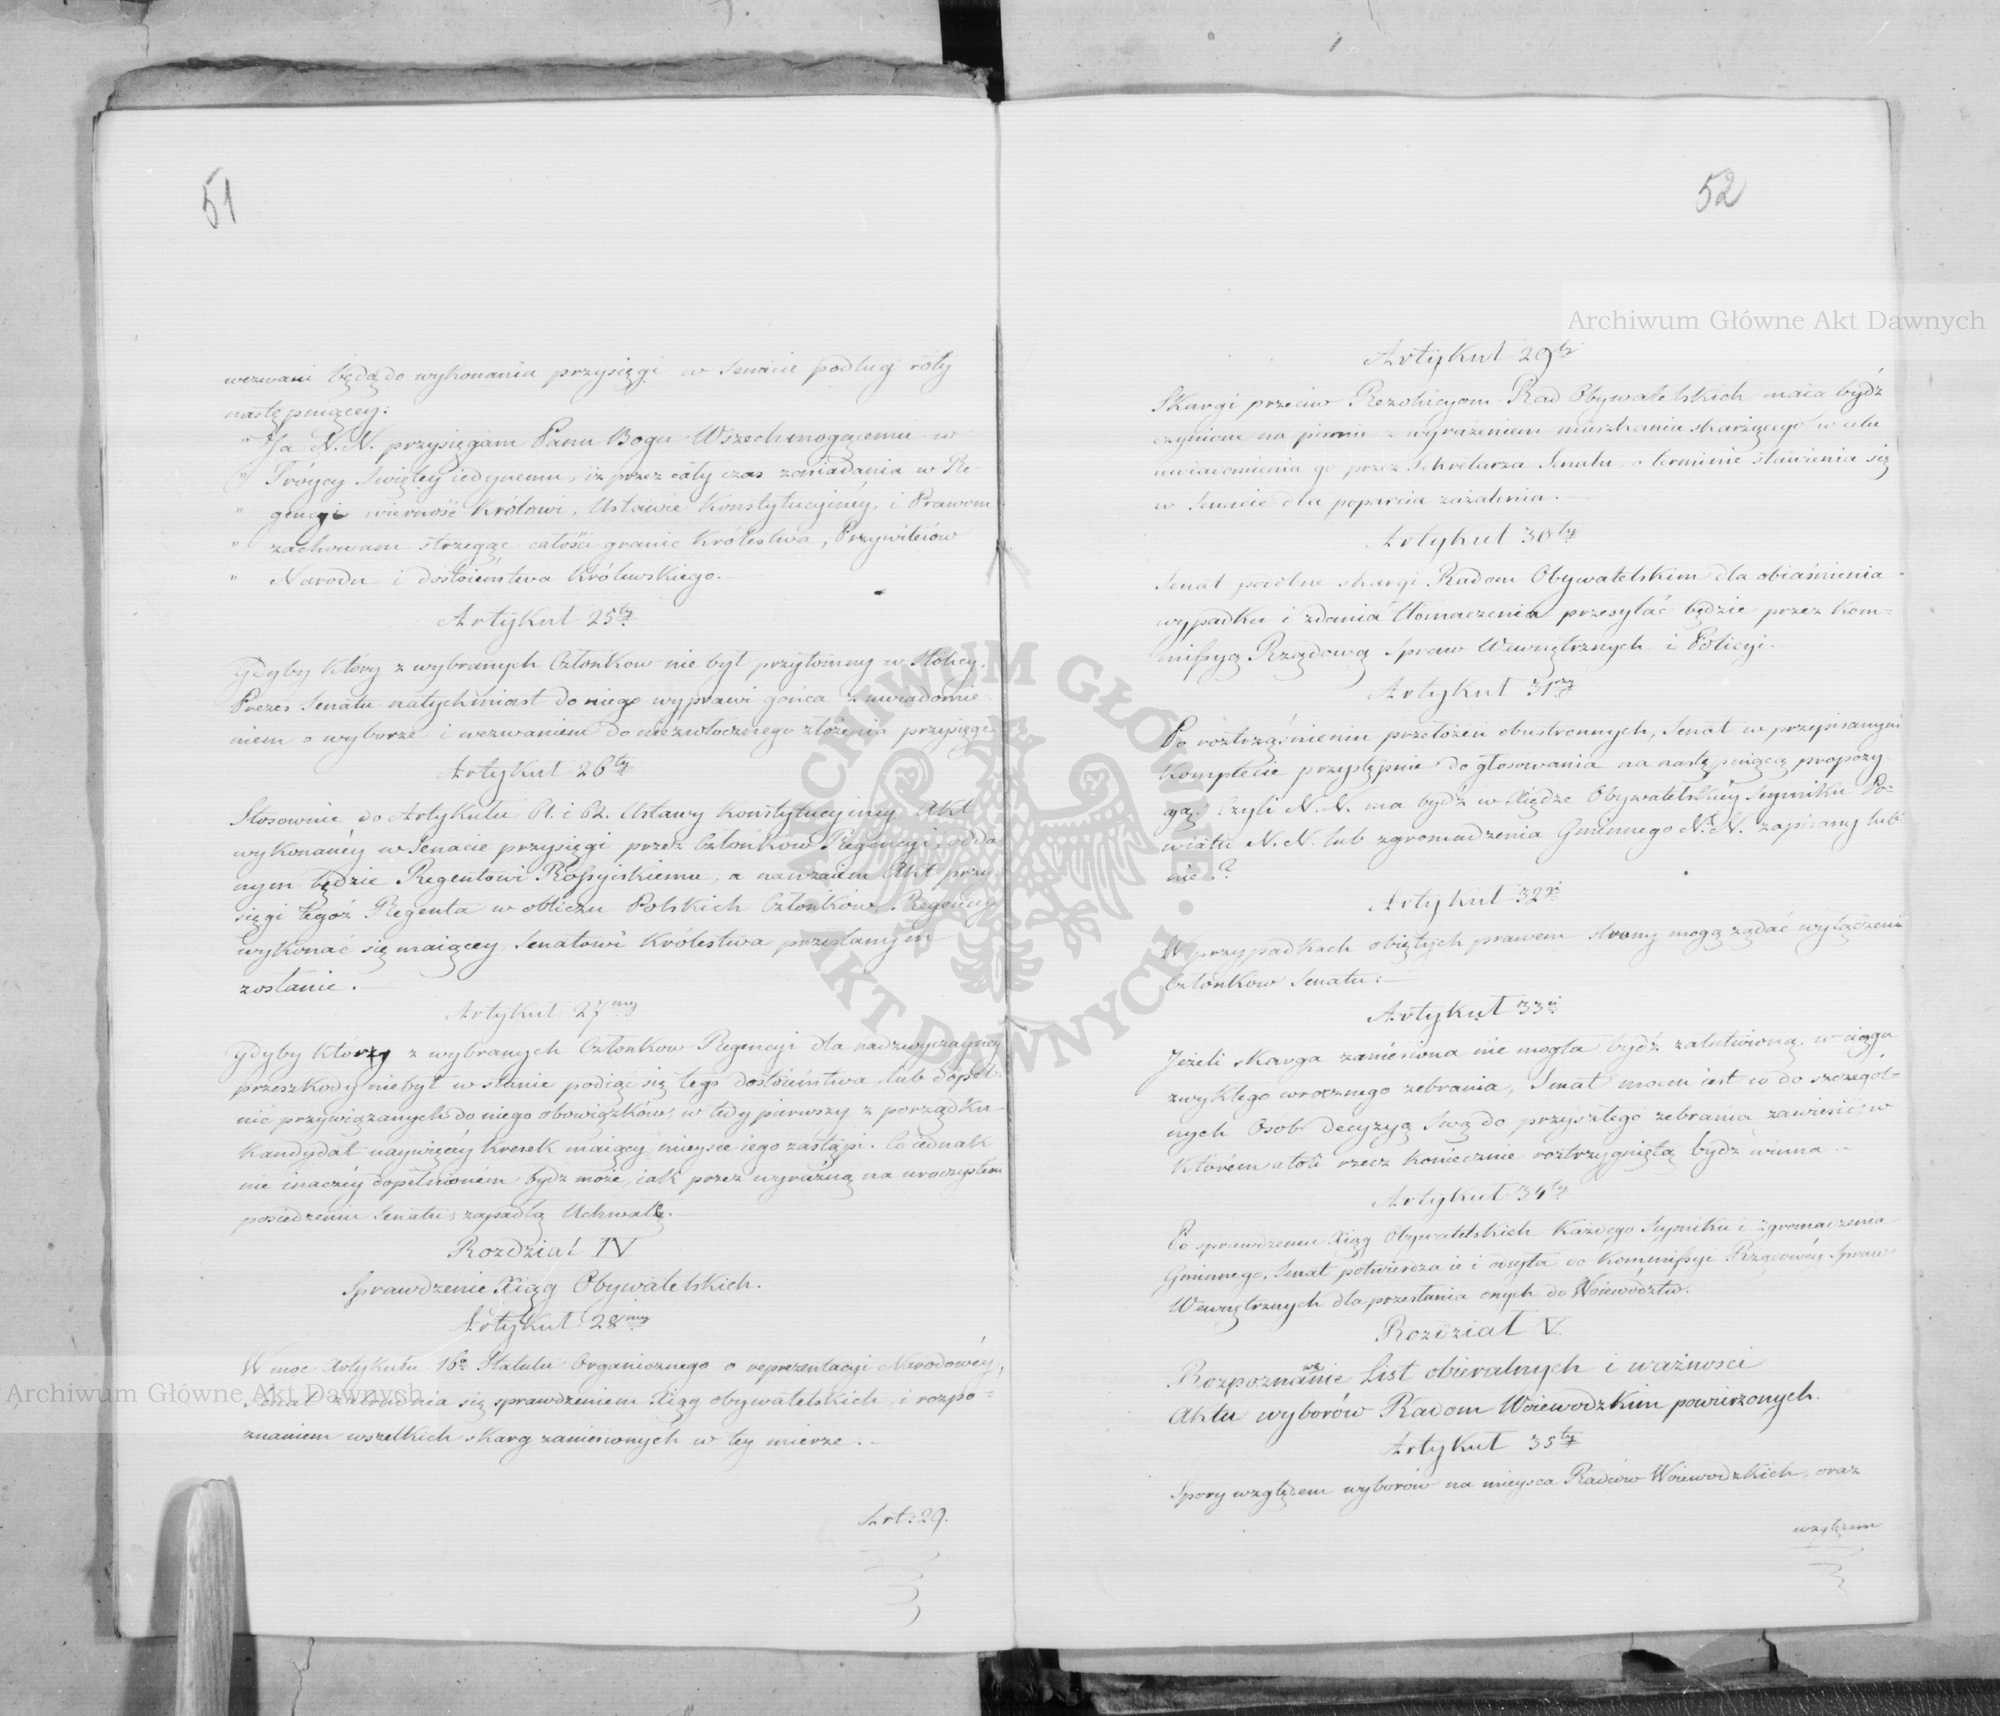 51
wezwani będą do wykonania przysięgi w Senacie podług roty
następuiącey:
"Ja N. N. przysięgam Panu Bogu Wszechmogącemu w
" Tróycy Swiętey iedynemu, iż przez cały czas zasiadania w Re-
" gencyi wierność Królowi, Ustawie Konstytucyiney, i Prawom
" zachowam strzegąc całości granic Królestwa, Przywileiów
" Narodu i dostoieństwa Królewskiego.
Artykuł 25ty
Gdyby który z wybranych Członkow nie był przytomny w Stolicy,
Prezes Senatu natychmiast do niego wyprawi gońca z uwiadomie-
niem o wyborze i wezwaniem do niezwłocznego złożenia przysięgi.
Artykuł 26ty
Stosownie do Artykułu 61. i 62. Ustawy Konstytucyiney Akt
wykonanéy w Senacie przysięgi przez Członkow Regencyi, odda
nym będzie Regentowi Rossyiskiemu, a nawzaiem Akt przy
sięgi tegoż Regenta w obliczu Polskich Członków Regencyi
wykonać się maiącey Senatowi Królestwa przesłanym
zostanie.
Artykuł 27my
Gdyby który z wybranych Członkow Regencyi dla nadzwyczayney
przeszkody niebył w stanie podiąć się tego dostoieństwa, lub dopeł-
nić przywiązanych do niego obowiązków, w tedy pierwszy z porządku
Kandydat naywięcéy kresek maiący, mieysce iego zastąpi. Co iednak
nie inaczéy dopełnioném bydz może, iak przez wyraźną na uroczystém
posiedzeniu Senatu, zapadłą Uchwałę.
Rozdział IV
Sprawdzenie Xiąg Obywatelskich.
Artykuł 28my
W moc Artykułu 16o Statutu Organicznego o reprezentacyi Narodowéy,
Senat zatrudnia się sprawdzeniem Xiąg obywatelskich, i rozpo-
znaniem wszelkich skarg zaniesionych w tey mierze.
Art: 29.
52
Artykuł 29ty
Skargi przeciw Rezolucyom Rad Obywatelskich maią bydź
czynione na pismie z wyrażeniem mieszkania skarżącego w celu
uwiadomienia go przez Sekretarza Senatu o terminie stawienia się
w Senacie dla poparcia zażalenia.
Artykuł 30ty
Senat podobne skargi Radom Obywatelskim dla obiaśnienia
wypadku i zdania tłomaczenia przesyłać będzie przez Kom-
missyą Rządową Spraw Wewnętrznych i Policyi.
Artykuł 31szy
Po roztrząśnieniu przełożeń obustronnych, Senat w przepisanym
Komplecie przystępuie do głosowania na następuiącą propozy-
cyą: Czyli N. N. ma bydź w Xiędze Obywatelskiéy Seymiku Po-
wiatu N. N. lub zgromadzenia Gminnego N. N. zapisany lub
nie?
Artykuł 32gi
W przypadkach obiętych prawem strony mogą żądać wyłączenia
Członkow Senatu.
Artykuł 33ci
Jeżeli skarga zaniesiona nie mogła bydź załatwioną w ciągu
zwykłego wrocznego zebrania, Senat mocen iest co do szczegól-
nych Osób decyzyą swą do przyszłego zebrania zawiesić, w
którém atoli rzecz koniecznie roztrzygniętą bydź winna.
Artykuł 34ty
Po sprawdzeniu Xiąg Obywatelskich każdego Seymiku i Zgromadzenia
Gminnego, Senat potwierdza ie i odsyła do Kommissyi Rządowéy Spraw
Wewnętrznych dla przesłania onych do Woiewództw.
Rozdział V.
Rozpoznanie List obieralnych i ważnosci
Aktu wyborów Radom Woiewodzkim powierzonych.
Artykuł 35ty
Spory względem wyborów na mieysca Radców Woiewodzkich, oraz
względem
Archiwum Główne Akt Dawnych
Archiwum Główne Akt Dawnych
ARCHIWUM GŁÓWNE AKT DAWNYCH